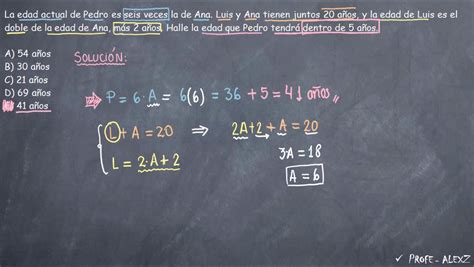 La edad actual de Pedro es seis veces la de Ana. Luis y Ana tienen juntos 20 años, y la edad de Luis es el
doble de la edad de Ana, más 2 años. Halle la edad que Pedro tendrá dentro de 5 años.
A) 54 años
B) 30 años
C) 21 años
D) 69 años
41 años
SOLUCIÓN:
P = 6·A = 6(6) = 36 + 5 = 41 años
L + A = 20 ⇒ 2A + 2 + A = 20
L = 2·A + 2
3·A = 18
A = 6
✓ PROFE - ALEXZ